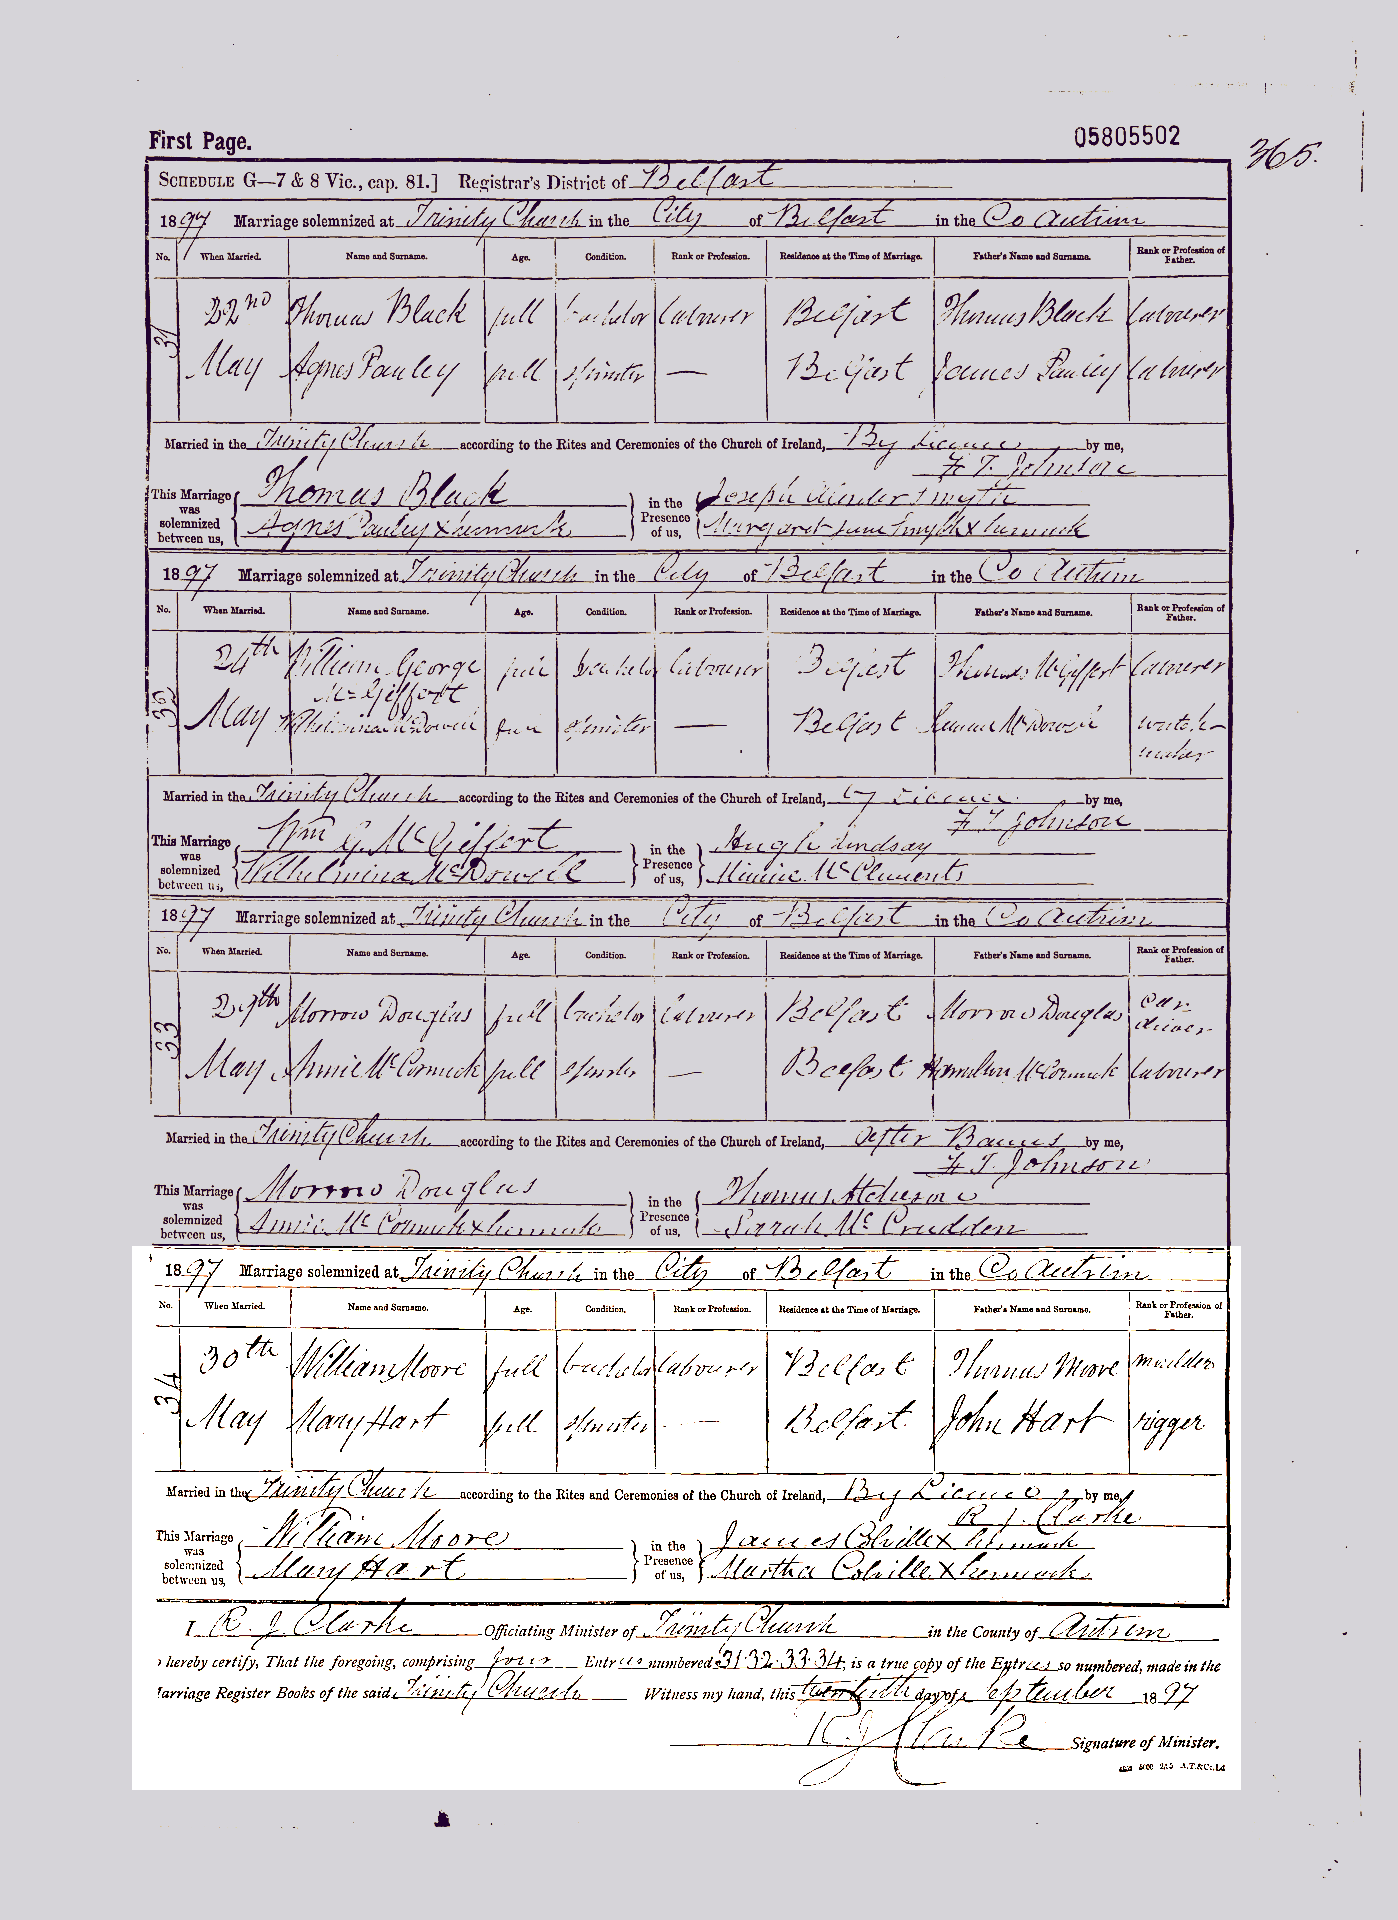 First Page.
05805502
365.
SCHEDULE G—7 & 8 Vic., cap. 81.] Registrar's District of Belfast
1897 Marriage solemnized at Trinity Church in the City of Belfast in the Co Antrim
No. When Married. Name and Surname. Age. Condition. Rank or Profession. Residence at the Time of Marriage. Father's Name and Surname. Rank or Profession of Father.
31 22nd Thomas Black full bachelor labourer Belfast Thomas Black labourer
May Agnes Pauley full spinster — Belfast James Pauley labourer
Married in the Trinity Church according to the Rites and Ceremonies of the Church of Ireland, By Licence by me,
F T. Johnson
This Marriage was solemnized between us, Thomas Black in the Presence of us, Joseph Smyth
Agnes Pauley x her mark Margaret Jane Smyth x her mark
1897 Marriage solemnized at Trinity Church in the City of Belfast in the Co Antrim
No. When Married. Name and Surname. Age. Condition. Rank or Profession. Residence at the Time of Marriage. Father's Name and Surname. Rank or Profession of Father.
32 24th William George McGiffert full bachelor labourer Belfast Thomas McGiffert labourer
May Wilhelmina McDowell full spinster — Belfast McDowell watch-maker
Married in the Trinity Church according to the Rites and Ceremonies of the Church of Ireland, by Licence by me,
F T Johnson
This Marriage was solemnized between us, Wm G. McGiffert in the Presence of us, Hugh Lindsay
Wilhelmina McDowell Minnie McClements
1897 Marriage solemnized at Trinity Church in the City of Belfast in the Co Antrim
No. When Married. Name and Surname. Age. Condition. Rank or Profession. Residence at the Time of Marriage. Father's Name and Surname. Rank or Profession of Father.
33 29th Morrow Douglas full bachelor labourer Belfast Morrow Douglas car-driver
May Annie McCormick full spinster — Belfast Hamilton McCormick labourer
Married in the Trinity Church according to the Rites and Ceremonies of the Church of Ireland, after Banns by me,
F T. Johnson
This Marriage was solemnized between us, Morrow Douglas in the Presence of us, Thomas Atcheson
Annie McCormick x her mark Sarah McCrudden
1897 Marriage solemnized at Trinity Church in the City of Belfast in the Co Antrim
No. When Married. Name and Surname. Age. Condition. Rank or Profession. Residence at the Time of Marriage. Father's Name and Surname. Rank or Profession of Father.
34 30th William Moore full bachelor labourer Belfast Thomas Moore moulder
May Mary Hart full spinster — Belfast John Hart rigger
Married in the Trinity Church according to the Rites and Ceremonies of the Church of Ireland, By Licence by me,
R J. Clarke
This Marriage was solemnized between us, William Moore in the Presence of us, James Colville x his mark
Mary Hart Martha Colville x her mark
I R. J Clarke Officiating Minister of Trinity Church in the County of Antrim
hereby certify, That the foregoing, comprising four Entries numbered 31.32.33.34, is a true copy of the Entries so numbered, made in the
Marriage Register Books of the said Trinity Church Witness my hand, this twentieth day of September 1897
R J Clarke Signature of Minister.